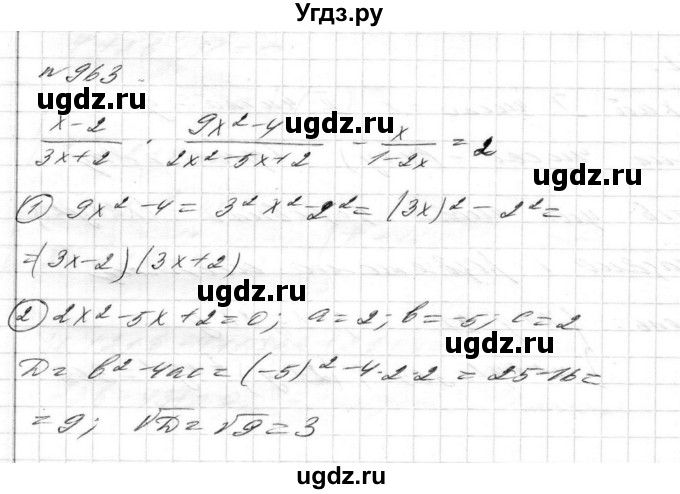 Угдз.ру
№963
ugdz.ru ugdz.ru
(x-2)/(3x+2) · (9x²-4)/(2x²-5x+2) - x/(1-2x) = 2
ugdz.ru
① 9x²-4 = 3²x²-2² = (3x)²-2² =
=(3x-2)(3x+2)
ugdz.ru
② 2x²-5x+2=0; a=2; b=-5; c=2
ugdz.ru
D= b²-4ac=(-5)²-4·2·2 = 25-16=
= 9; √D=√9=3
ugdz.ru